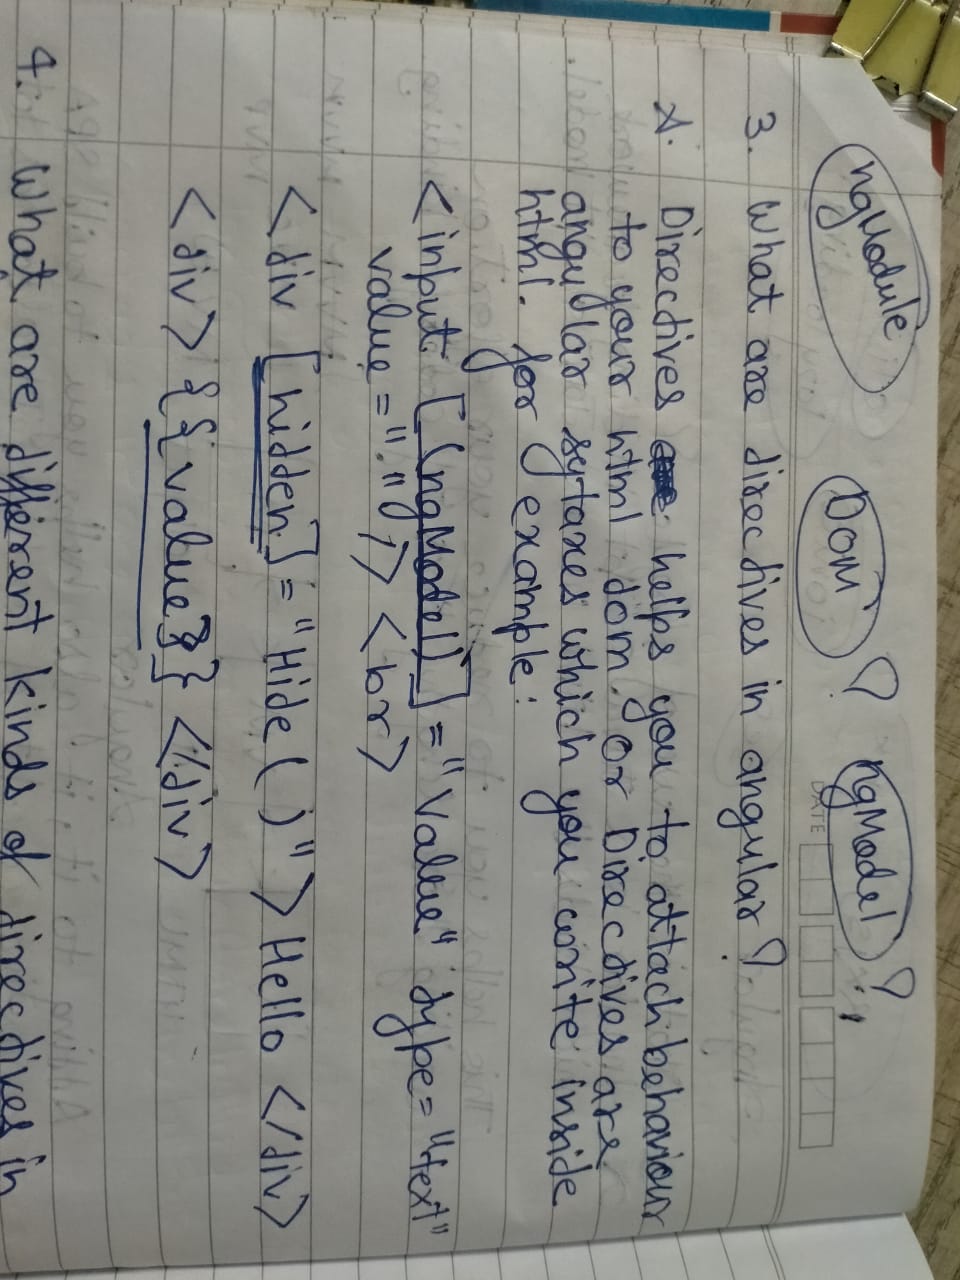 ngModule DOM ? ngModel ?
DATE
3. What are directives in angular ?
A. Directives helps you to attach behaviour
to your html dom. or Directives are
angular sytaxes which you write inside
html. for example:
<input [(ngModel)] = "Value" type= "text"
value = "" /> <br>
<div [hidden] = "Hide()"> Hello </div>
<div> {{value}} </div>
4. What are different kinds of directives in